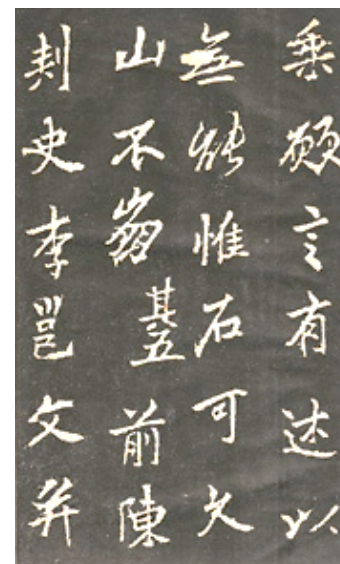 乘願言有述以
無能惟石可久
山不崩其五前陳
刺史李邕文并